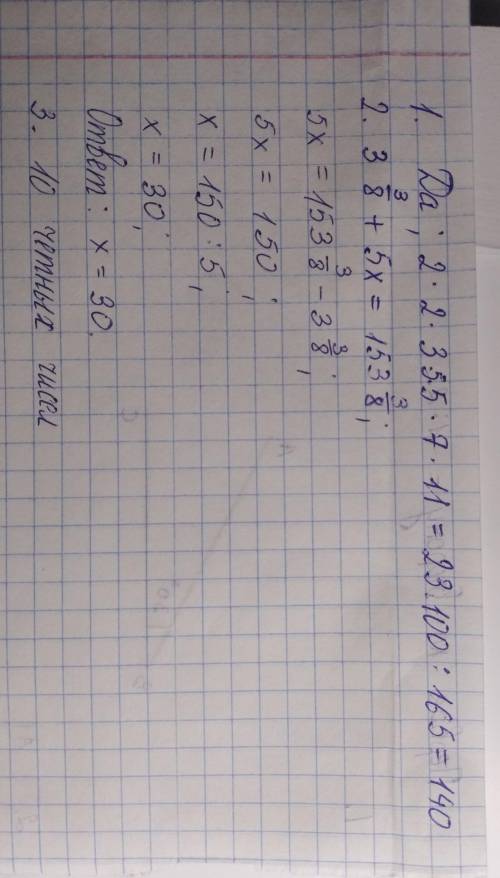 1. Да; 2·2·355·7·11=23.100:165=140
2. 3 3/8 + 5x = 153 3/8;
5x = 153 3/8 - 3 3/8;
5x = 150;
x = 150:5;
x = 30;
Ответ: x = 30.
3. 10 четных чисел